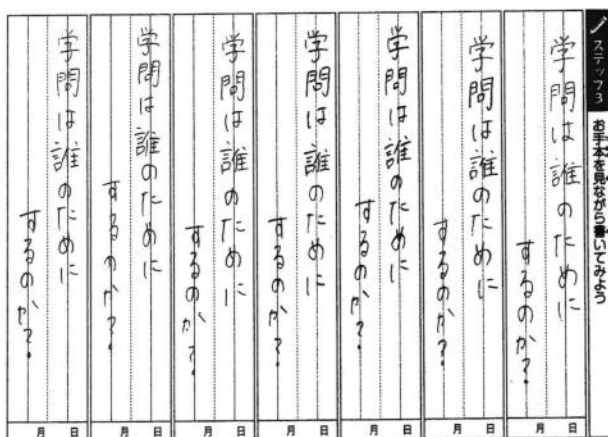 ステップ3 お手本を見ながら書いてみよう
学問は誰のために
するのか?
月 日
学問は誰のために
するのか?
月 日
学問は誰のために
するのか?
月 日
学問は誰のために
するのか?
月 日
学問は誰のために
するのか?
月 日
学問は誰のために
するのか?
月 日
学問は誰のために
するのか?
月 日